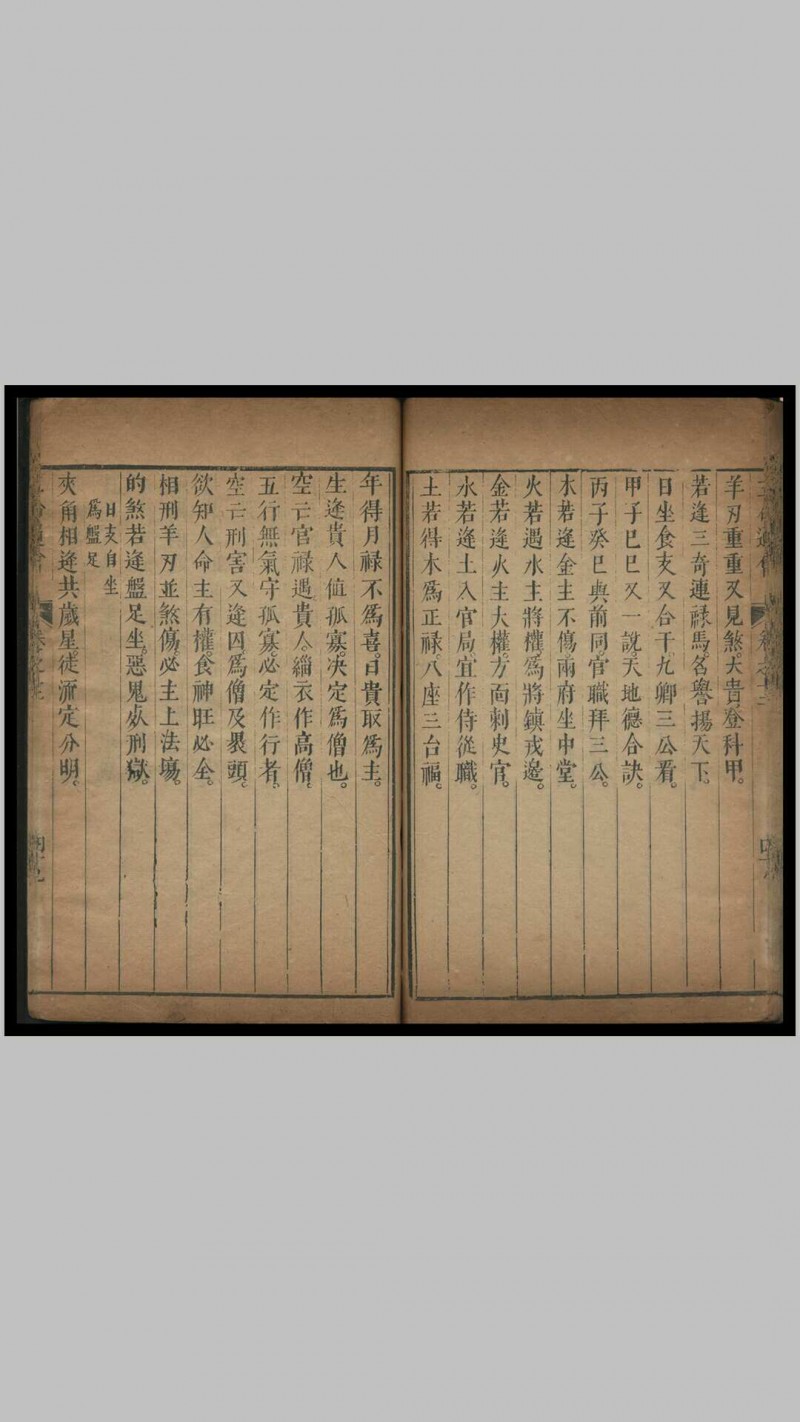 羊刃重重又見煞大貴登科甲。
若逢三奇連祿馬名譽揚天下。
日坐食支又合干九卿三公看。
甲子巳巳又一說天地德合訣。
丙子癸巳與前同官職拜三公。
木若逢金主不傷兩府坐中堂。
火若遇水主將權爲將鎮戎邊。
金若逢火主大權方面刺史官。
水若逢土入官局宜作侍從職。
土若得木爲正祿八座三台福。
年得月祿不爲喜。日貴取爲主。
生逢貴人値孤寡。決定爲僧也。
空亡官祿遇貴人。緇衣作高僧。
五行無氣守孤寡必定作行者。
空亡刑害又逢囚爲僧及裹頭。
欲知人命主有權食神旺必全。
相刑羊刃並煞傷必主上法場。
的煞若逢盤足坐。惡鬼㱕刑獄。
日支自坐
爲盤足
夾角相逢共歲星。徒流定分明。